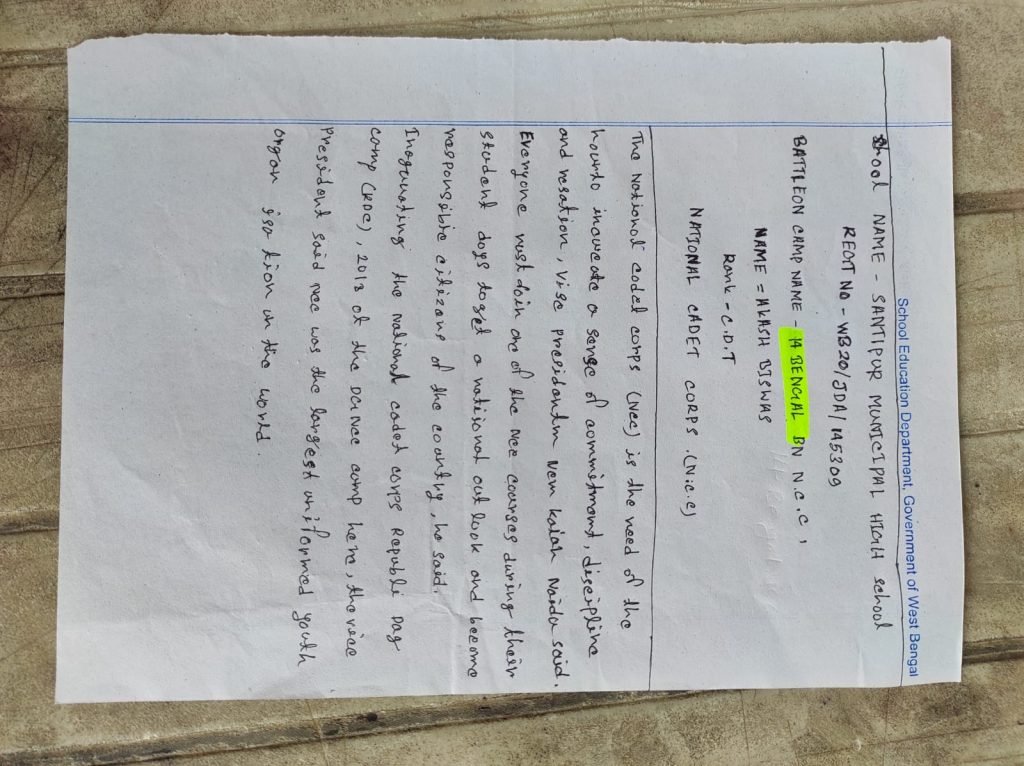 School Education Department, Government of West Bengal
School NAME - SANTIPUR MUNICIPAL HIGH School
REGT NO - WB20/JDA/145309
BATTLEON CAMP NAME - 14 BENGAL BN N.C.C,
NAME = AKASH BISWAS
Rank - C.D.T
NATIONAL CADET CORPS (N.C.C)
The National cadet corps (Ncc) is the need of the
hounto incwcate a sense of commitment, discipline
and resation, vise presidentm vem kaiah Naidu said.
Everyone must doin one of the Ncc courses during their
student days toget a national out look and become
responsible citizens of the country, he said.
Inoganating the National cadet corps Republi Day
comp (RDC), 2018 at the DGNCC camp here, the vice
president said ncc was the largest uniformed youth
organ isation in the world.